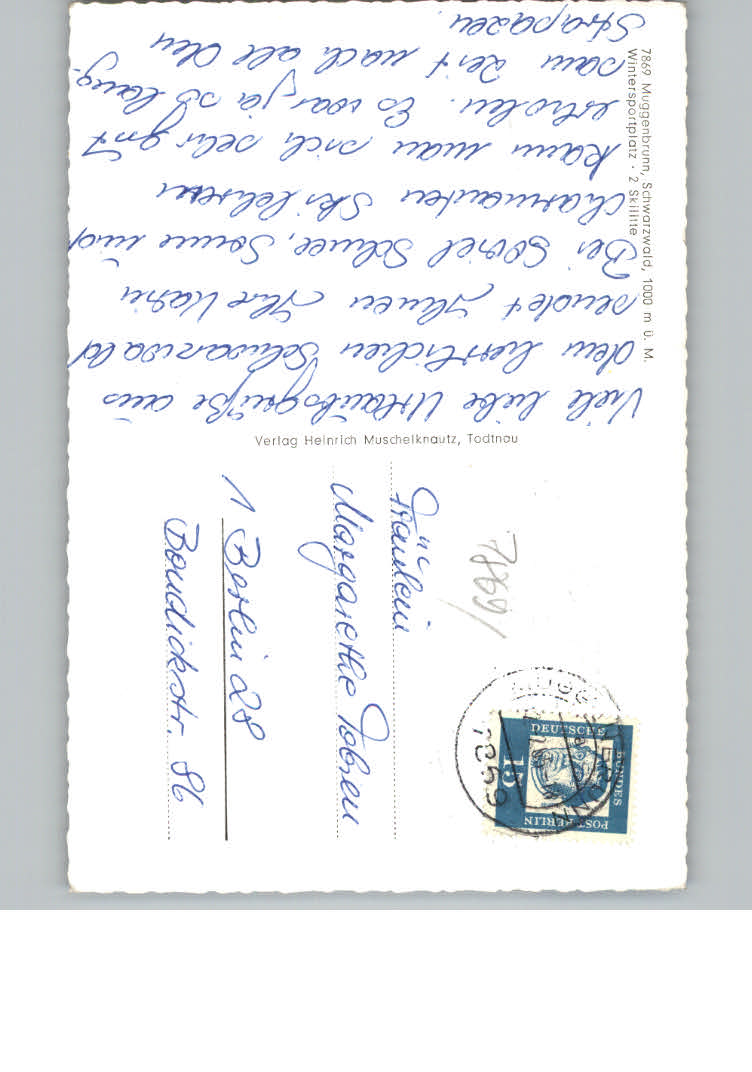 Viele liebe Urlaubsgrüße aus
dem herrlichen Schwarzwald
sendet Ihnen Ihre Karin
Bei soviel Schnee, Sonne und
charmanten Skilehrern
kann man sich sehr gut
erholen. Es war ja so lang-
sam Zeit nach all den
Strapazen.
7869 Muggenbrunn, Schwarzwald, 1000 m ü. M.
Wintersportplatz · 2 Skilifte
Verlag Heinrich Muschelknautz, Todtnau
7869
Fräulein
Margarethe Tobien
1 Berlin 28
Bondickstr. 86
DEUTSCHE
BUNDES
POST BERLIN
15
7869